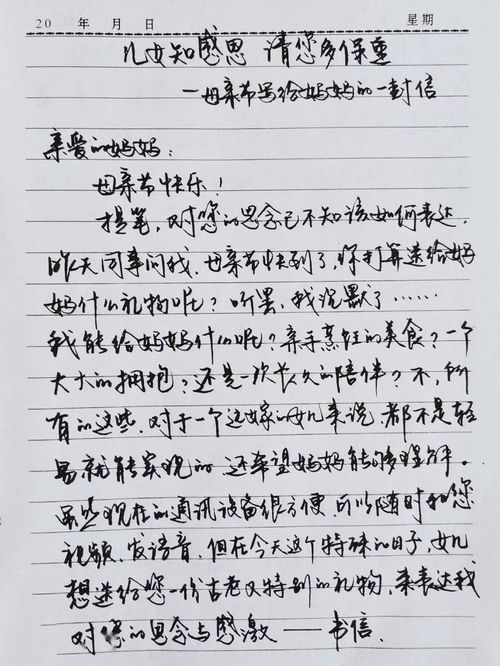 20 年 月 日 星期
儿女知感恩 请您多保重
—母亲节写给妈妈的一封信
亲爱的妈妈:
母亲节快乐!
提笔,对您的思念已不知该如何表达,
昨天同事问我,母亲节快到了,你打算送给妈
妈什么礼物呢?听罢,我沉默了……
我能给妈妈什么呢?亲手烹饪的美食?一个
大大的拥抱?还是一次长久的陪伴?不,所
有的这些,对于一个远嫁的女儿来说,都不是轻
易就能实现的,还希望妈妈能够理解。
虽然现在的通讯设备很方便,可以随时和您
视频、发语音,但在今天这个特殊的日子,女儿
想送给您一份古老又特别的礼物,来表达我
对您的思念与感激——书信。